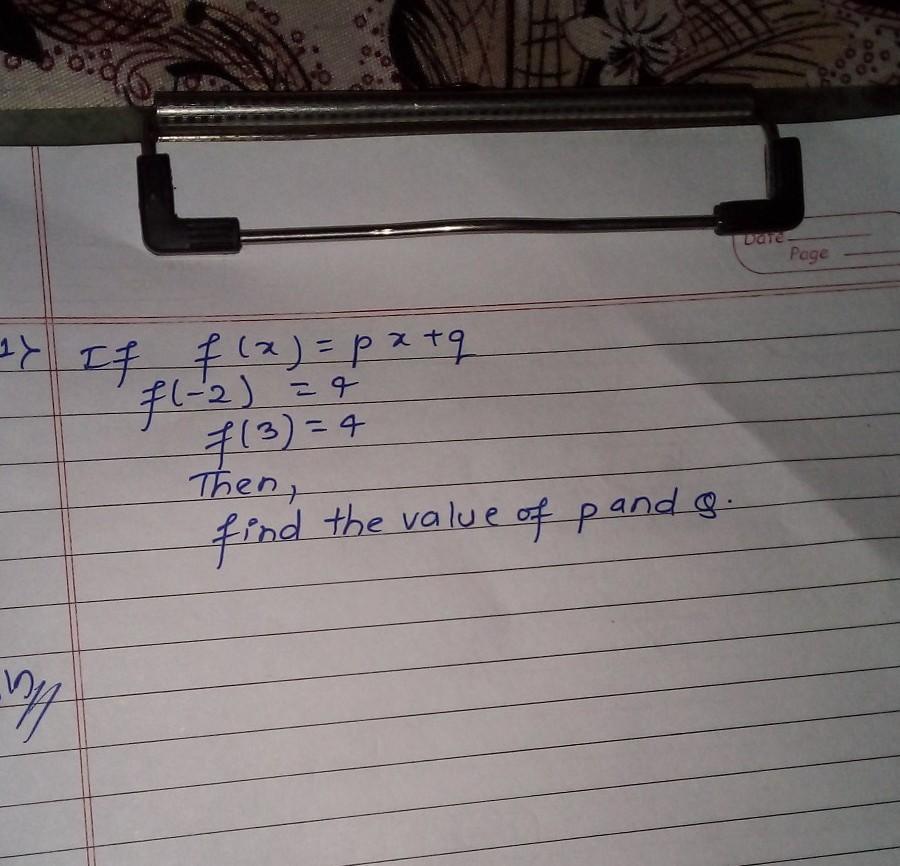 Date
Page
1) If f(x) = px + q
f(-2) = 4
f(3) = 4
Then,
find the value of p and q.